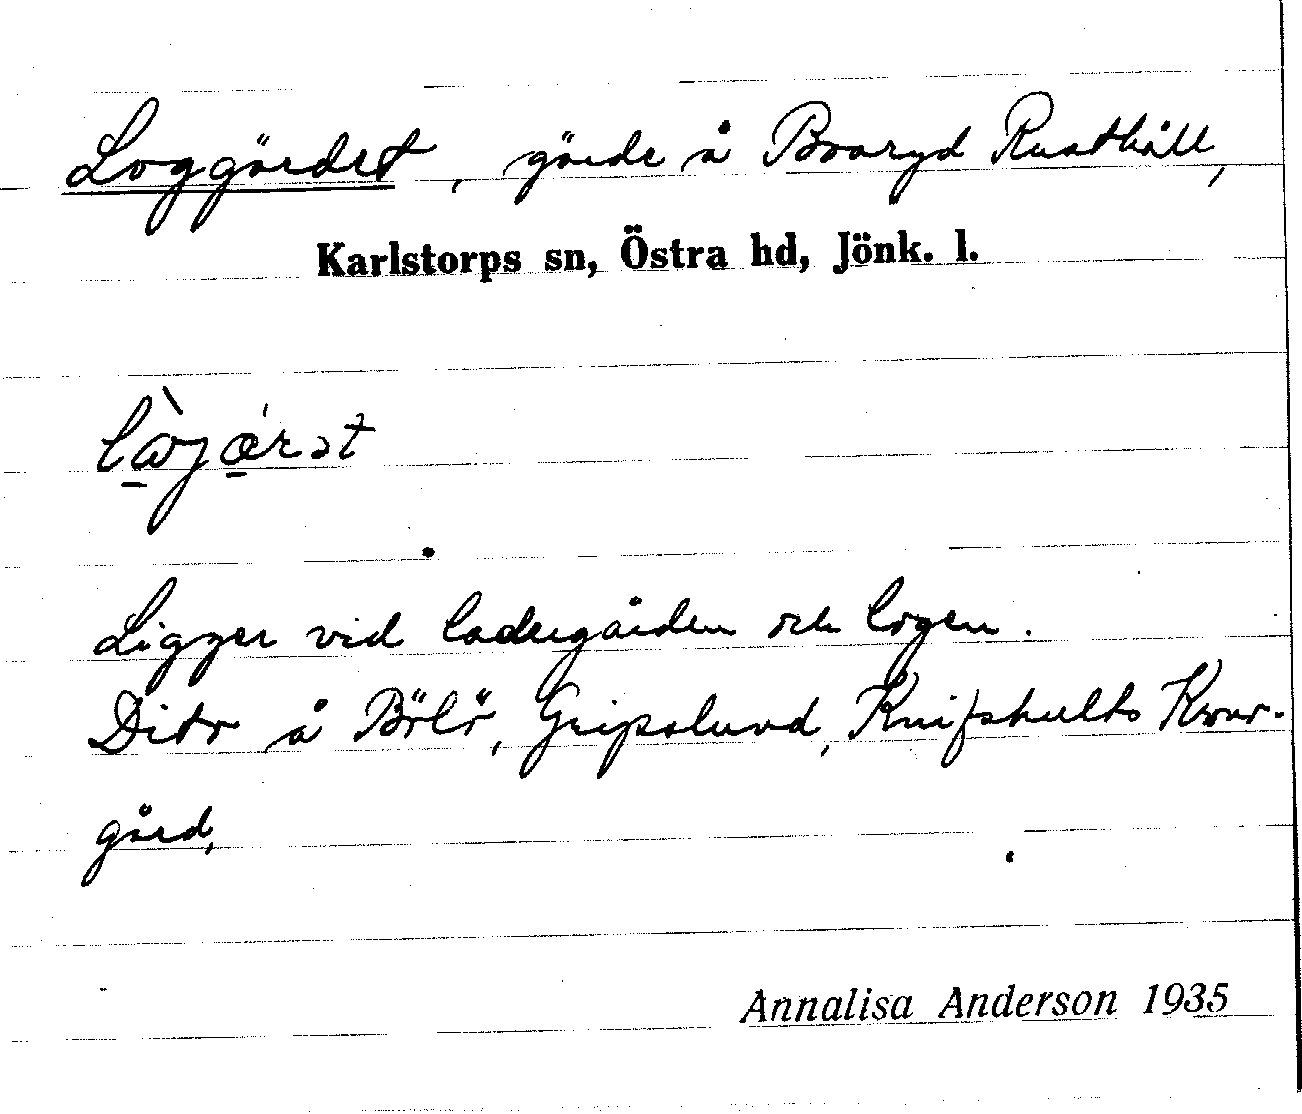 Loggärdet, gärde å Boaryd Rusthåll,
Karlstorps sn, Östra hd, Jönk. l.
Ligger vid ladugården och logen.
Dito å Bölö, Gripslund, Knifshults Kvar-
gård,
Annalisa Anderson 1935